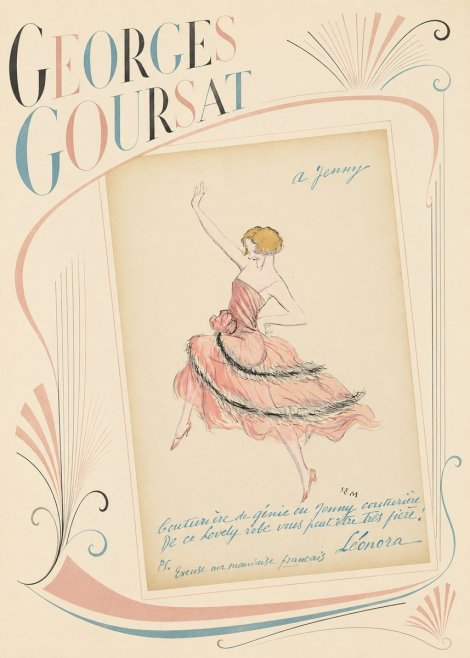 GEORGES
GOURSAT
a Jenny
SEM
Couturière de génie ou Jenny couturière
De ce lovely robe vous peut être très fière!
Léonora
PS. Excuse ma mauvaise français